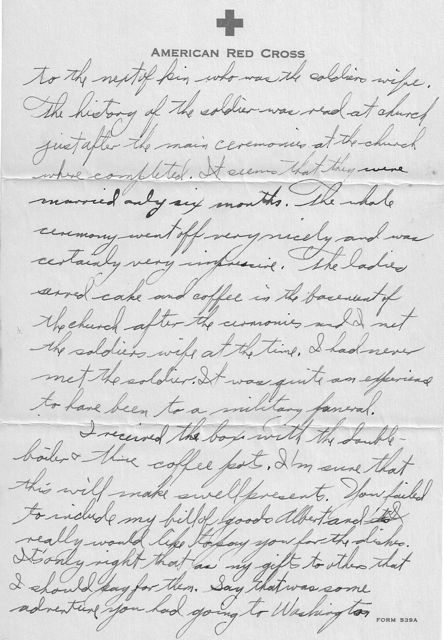 American Red Cross
to the next of kin who was the soldiers wife.
The history of the soldier was read at church
just after the main ceremonies at the church
where completed. It seems that they were
married only six months. The whole
ceremony went off very nicely and was
certainly very impressive. The ladies
served cake and coffee in the basement of
the church after the cermonies and I met
the soldiers wife at the time. I had never
met the soldier. It was quite an experience
to have been to a military funeral.
I received the box with the double-
boiler & three coffee pots. I'm sure that
this will make swell present. You failed
to include my bill of goods Albert and I
really would like to pay you for the dishes.
It's only right that as my gift to others that
I should pay for them. Say that was some
adventure you had going to Washington
Form 539A